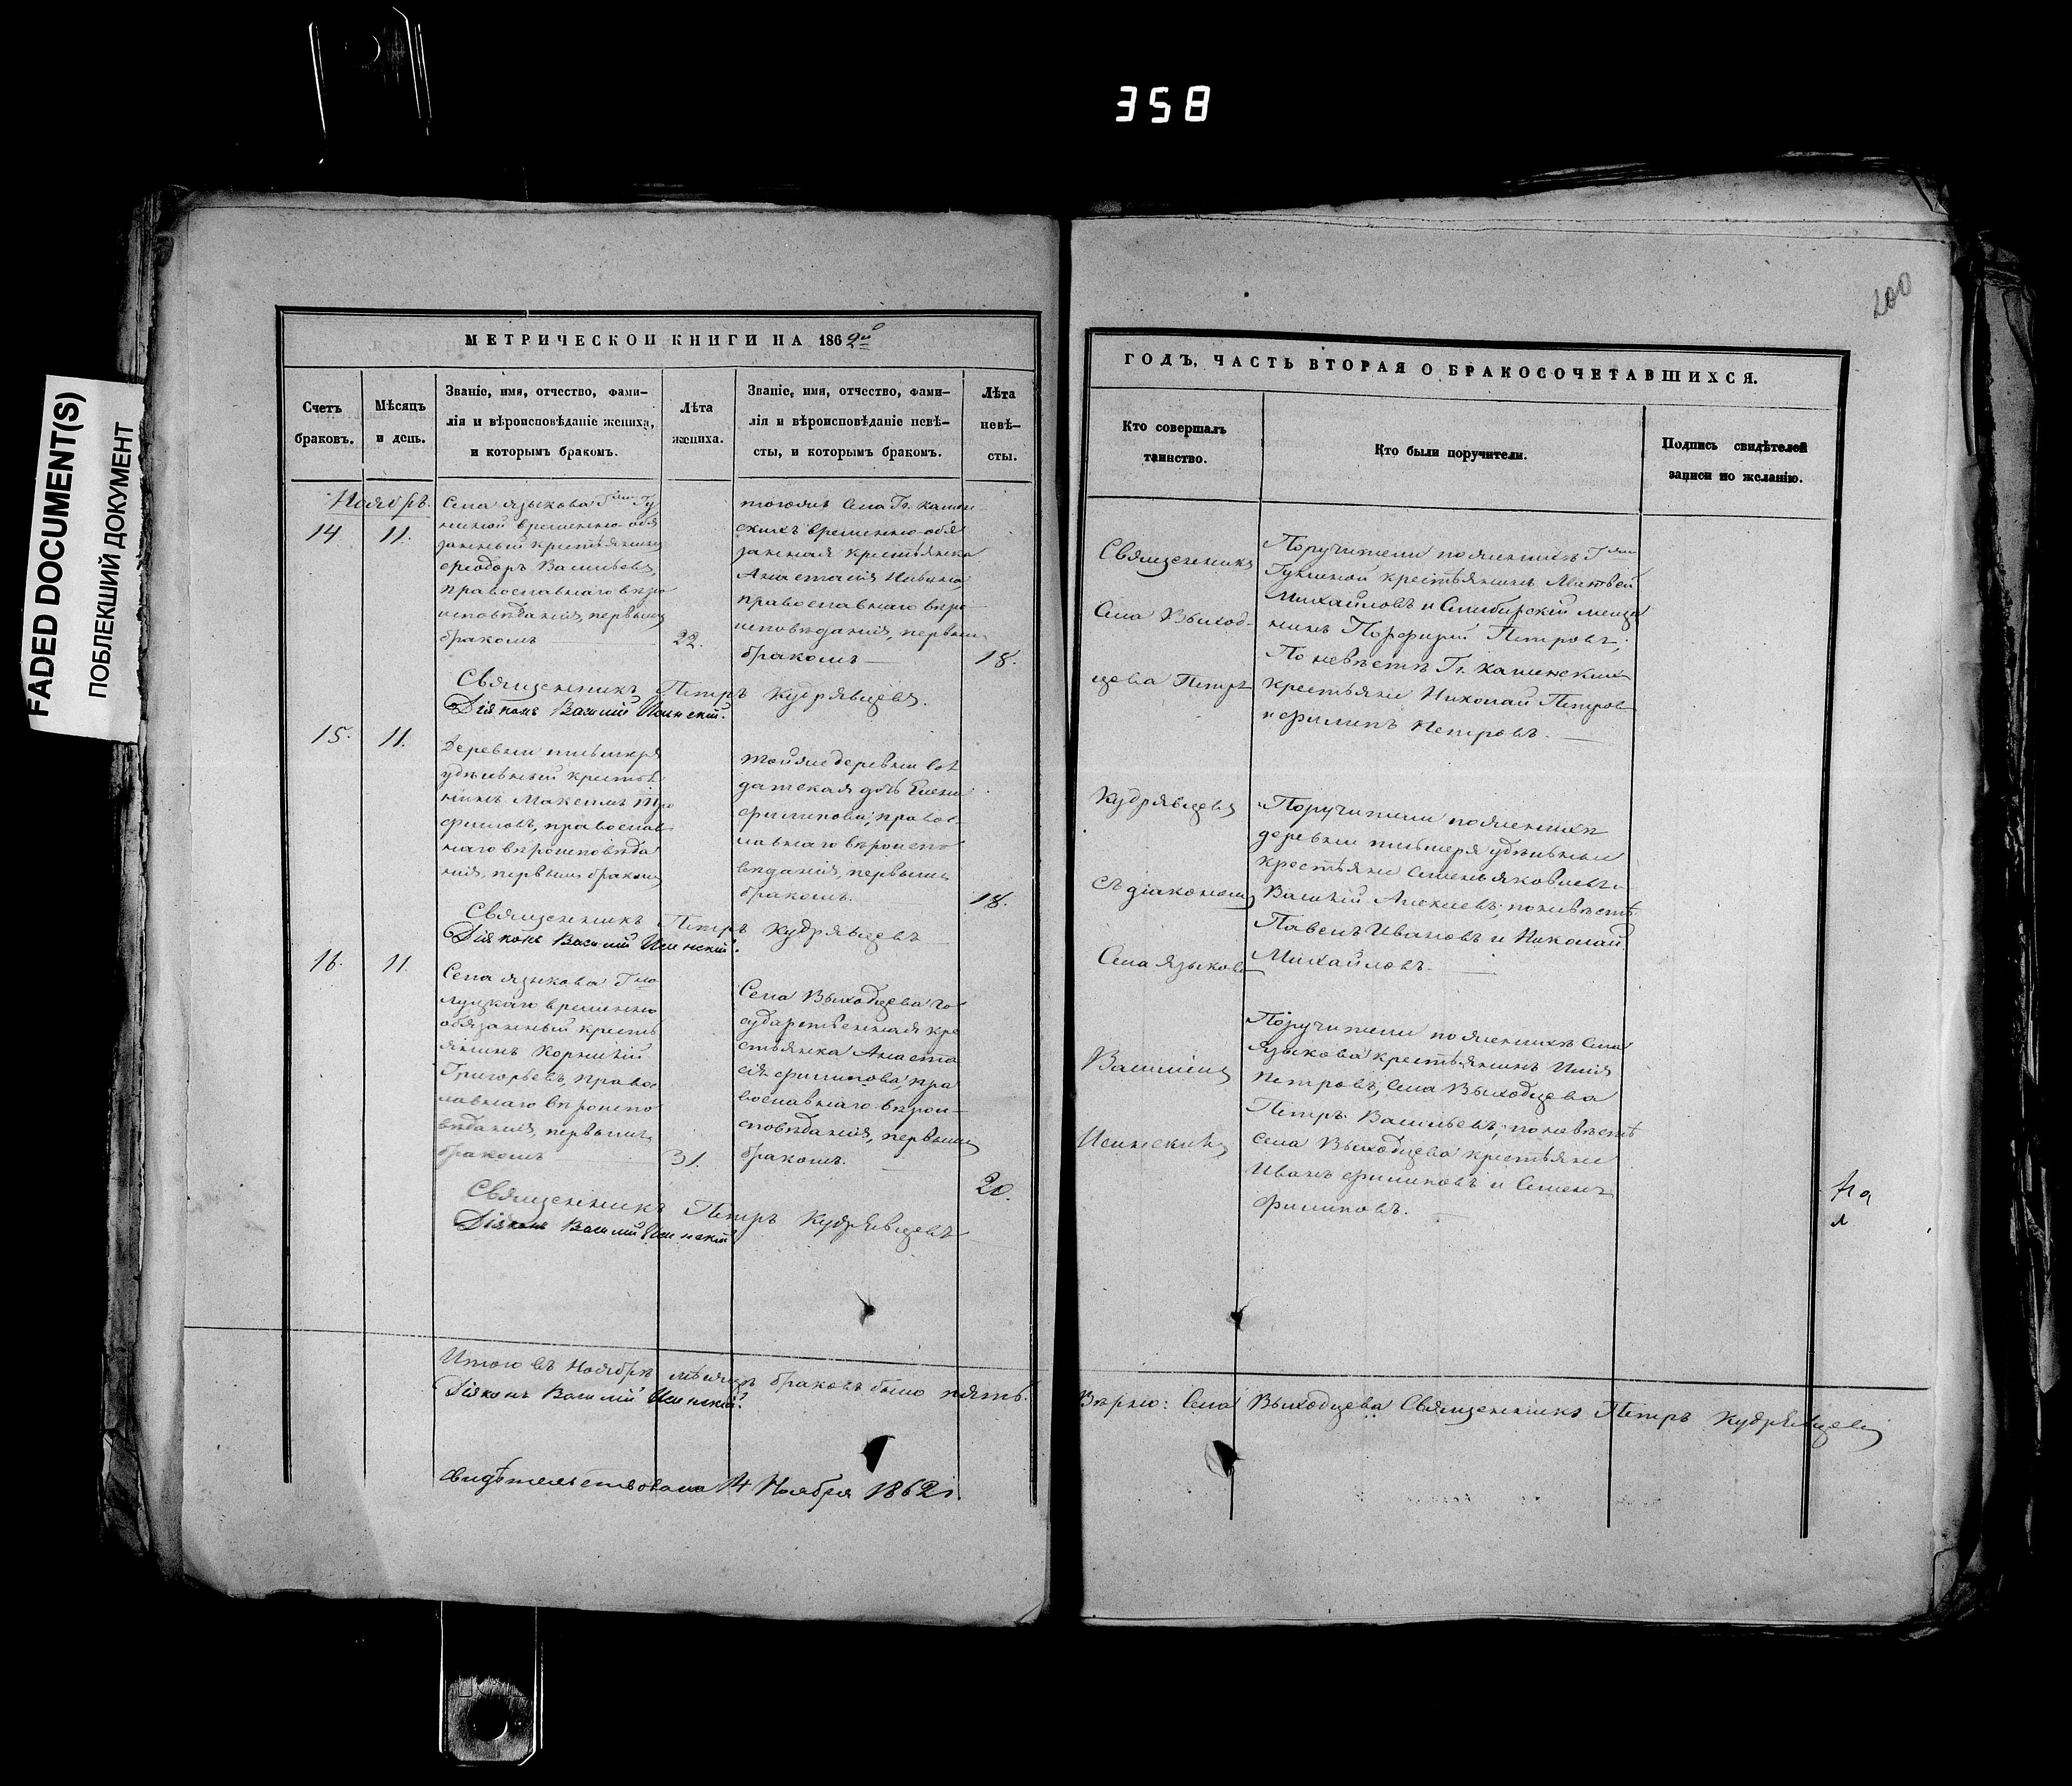 358
FADED DOCUMENT(S)
ПОБЛЕКШИЙ ДОКУМЕНТ
200
МЕТРИЧЕСКОЙ КНИГИ НА 1862й
Счетъ браковъ.
Мѣсяцъ и день.
Званіе, имя, отчество, фами-
лія и вѣроисповѣданіе жениха,
и которымъ бракомъ.
Лѣта
жениха.
Званіе, имя, отчество, фами-
лія и вѣроисповѣданіе невѣ-
сты, и которымъ бракомъ.
Лѣта
невѣ-
сты.
Ноябрь.
14.
11.
Села Языкова
временно-обя
занный крестьянинъ
Феодоръ Васильевъ,
православнаго вѣро
исповѣданія, первымъ
бракомъ
22.
тогоже Села Гг. Кашин-
скихъ временно-обя
занная крестьянка
Анастасія
православнаго вѣро
исповѣданія, первымъ
бракомъ
18.
Священникъ Петръ Кудрявцевъ.
Діяконъ Василій
15.
11.
Деревни
удѣльный крестья
нинъ Максимъ Тро
фимовъ, православ
наго вѣроисповѣда
нія, первымъ бракомъ
тойже деревни сол
датская дочь Елена
Филипова, правос-
лавнаго вѣроиспо
вѣданія, первымъ
бракомъ.
18.
Священникъ Петръ Кудрявцевъ
Діяконъ Василій
16.
11.
Села Языкова Гна
временно
обязанный кресть
янинъ Корнилій
Григорьевъ, правос
лавнаго вѣроиспо
вѣданія, первымъ
бракомъ
31.
Села Выходцева го
сударственная кре
стьянка Анаста
сія Филипова пра
вославнаго вѣрои-
сповѣданія, первымъ
бракомъ.
20.
Священникъ Петръ Кудрявцевъ
Діяконъ Василій
Итого въ Ноябрѣ мѣсяцѣ браковъ было пять.
Діяконъ Василій
свидѣтельствовано 14 Ноября 1862 г.
ГОДЪ, ЧАСТЬ ВТОРАЯ О БРАКОСОЧЕТАВШИХСЯ.
Кто совершалъ
таинство.
Кто были поручители.
Подпись свидѣтелей
записи по желанію.
Священникъ
Села Выход-
цева Петръ
Кудрявцевъ
съ діакономъ
Села Языкова
Василіемъ
Поручители по женихѣ
крестьянинъ Матвей
Михайловъ и Симбирскій меща
нинъ Порфирій Петровъ;
По невѣстѣ Гг. Кашинскихъ
крестьяне Николай Петровъ
и Филипъ Петровъ.
Поручители по женихѣ
деревни удѣльные
крестьяне Семенъ Яковлевъ и
Василій Алексѣевъ; по невѣстѣ
Павелъ Ивановъ и Николай
Михайловъ.
Поручители по женихѣ Села
Языкова крестьянинъ Илія
Петровъ, Села Выходцева
Петръ Васильевъ; по невѣстѣ
села Выходцева крестьяне
Иванъ Филиповъ и Семенъ
Филиповъ.
Вѣрно: Села Выходцева Священникъ Петръ Кудрявцевъ